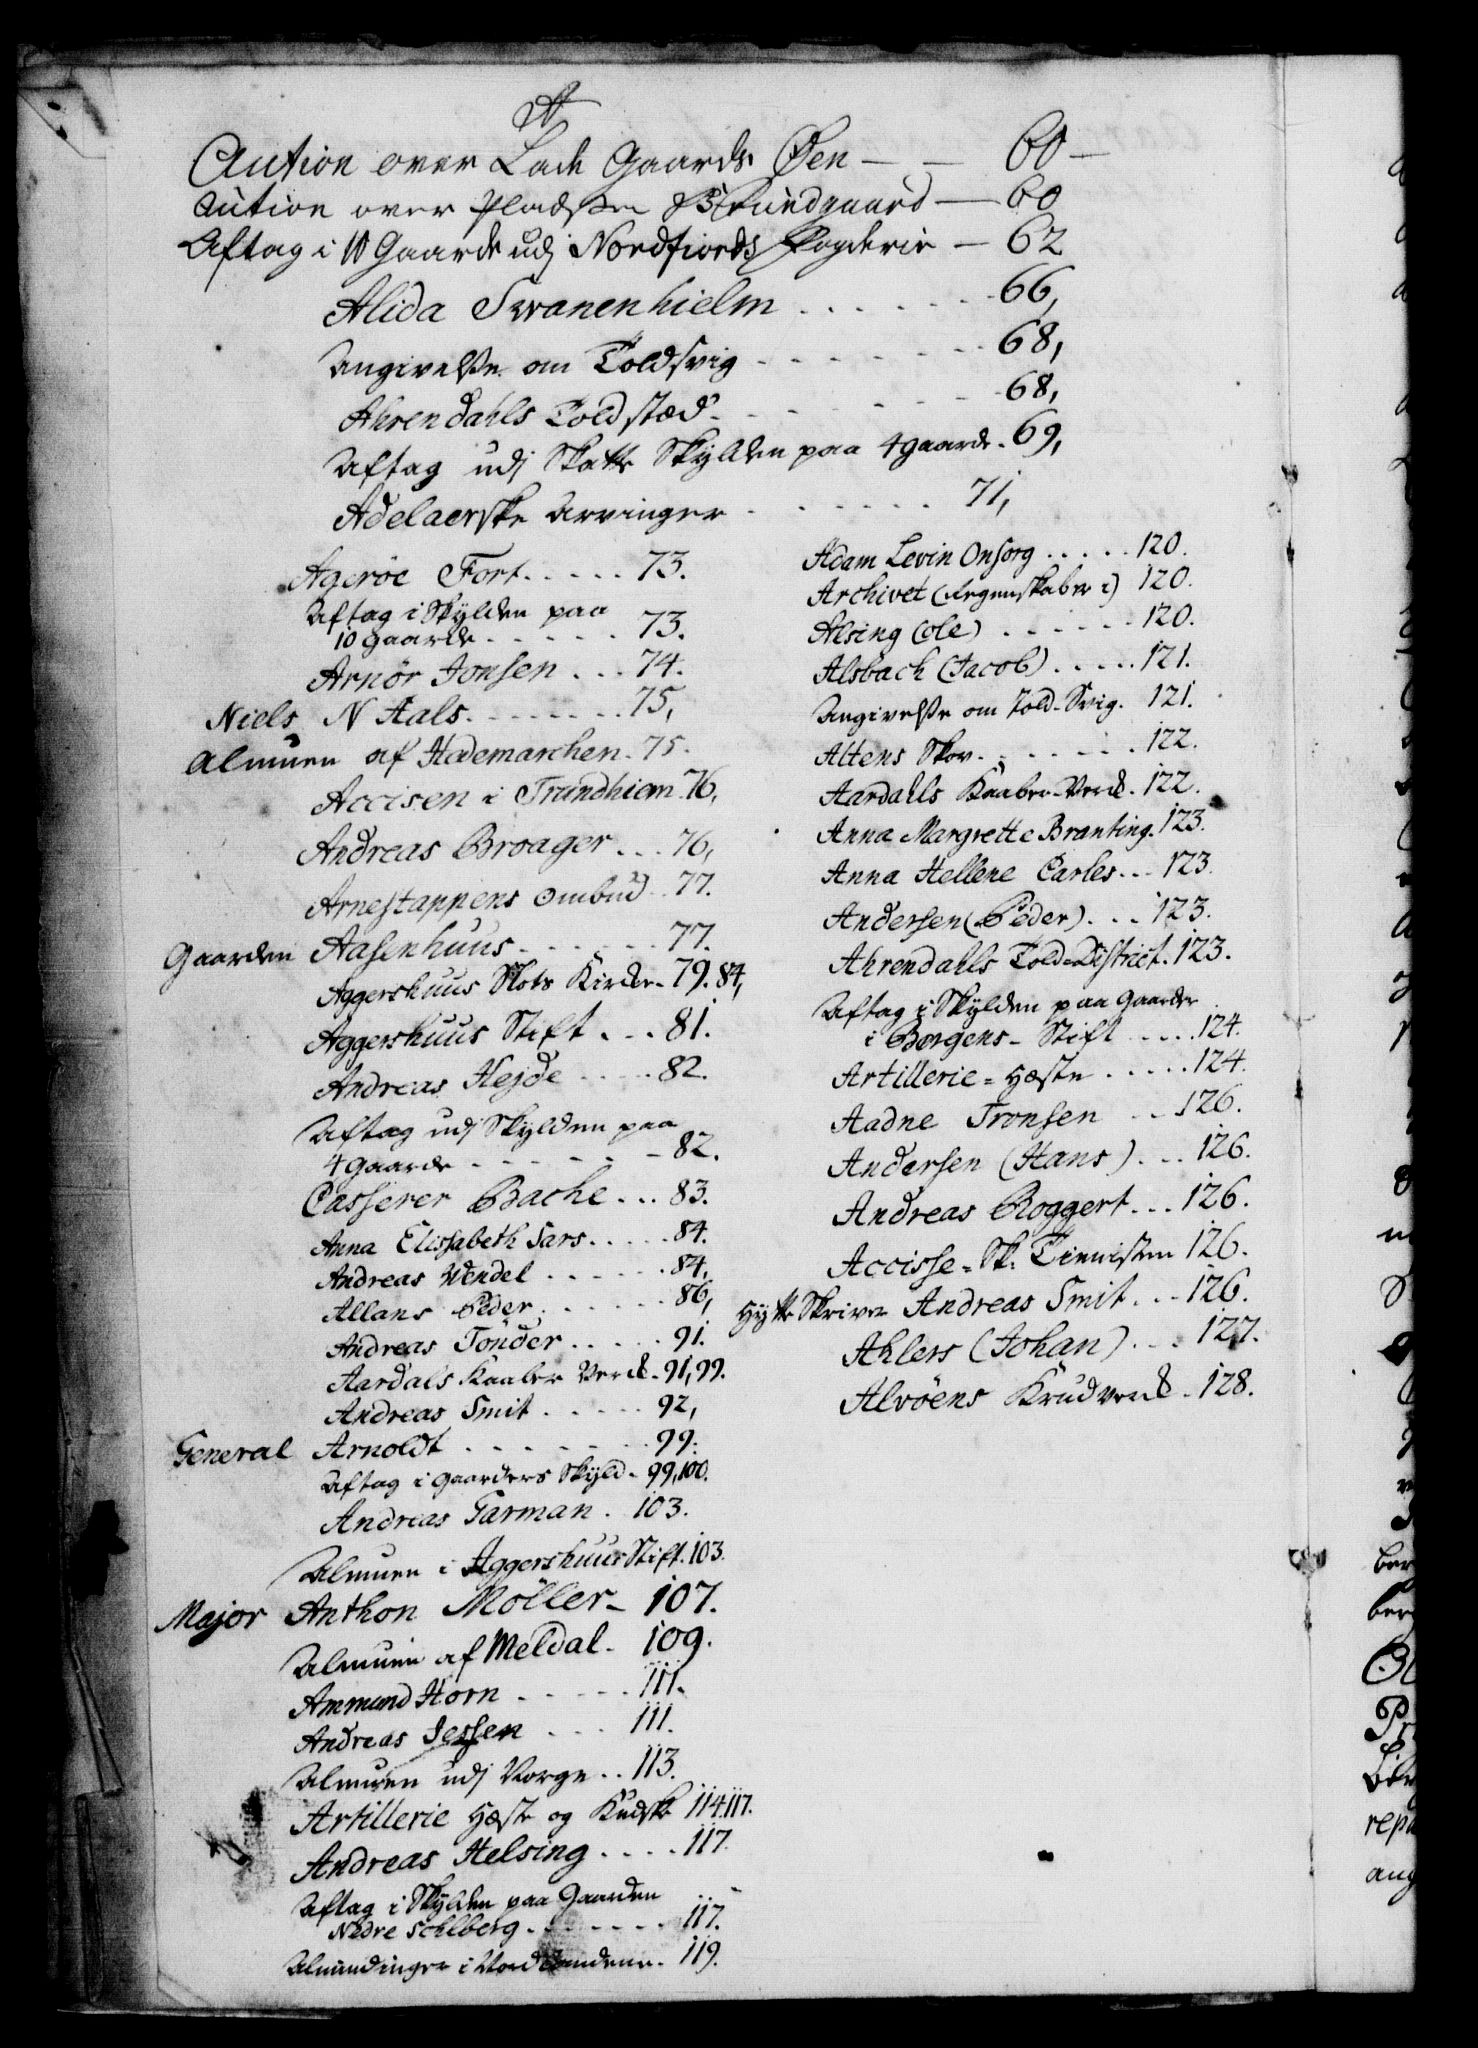 A
Auction over Lade Gaards Øen — — 60 —
Auction over Pladsen Strundgaard — 60
Aftag i 10 Gaarde udj Nordfiords Fogderie — 62
Alida Svanenhielm . . . . . . 66,
Angivelsse om Toldsvig . . . . . . . 68,
Ahrendahls Toldstæd . . . . . . . 68,
Aftag udj Skatte Skylden paa 4 gaarde . 69,
Adelaerske Arvinger . . . . . . . 71,
Agerøe Fort . . . . . 73.
Aftag i Skylden paa
10 gaarde . . . . . . 73.
Arnör Jonsen . . . 74.
Niels N Aals . . . . . . . 75,
Almuen af Hedemarchen . 75.
Accisen i Trundhiem . 76,
Andreas Broager . . . 76,
Arnestappens Ombud . . 77.
Gaarden Aasenhuus . . . . . . 77.
Aggershuus Slots Kircke . 79. 84,
Aggershuus Stift . . . 81.
Andreas Hejde . . . . . 82.
Aftag udj Skylden paa
4 gaarde . . . . . . . 82.
Casserer Bache . . . 83.
Anna Elissabeth Sars . . . . . 84.
Andreas Wendel . . . . . . 84,
Allans Peder . . . . . . 86,
Andreas Tönder . . . . . 91.
Aardals Kaaber Verck . 91, 99.
Andreas Smit . . . . . 92,
General Arnoldt . . . . . . . 99.
Aftag i gaarders Skyld . 99, 100.
Andreas Garman . 103.
Almuen i Aggershuus Stift . 103.
Major Anthon Möller – 107.
Almuen af Meldal . 109.
Ammund Horn . . . . . 111.
Andreas Jessen . . . 111.
Almuen udj Norge . . 113.
Artillerie Heste og Kudske 114. 117.
Andreas Helsing . . . . 117.
Aftag i Skylden paa Gaarden
Nedre Sohlberg . . . . . . . 117.
Almindinger i Nordlandene . 119.
Adam Levin Onsorg . . . . . 120.
Archivet (Regenskaber i) 120.
Alsing (Ole) . . . . . . 120.
Alsbach (Jacob) . . . . . 121.
Angivelsse om Told-Svig . 121.
Altens Skov . . . . . . . 122.
Aardahls Kaaber-Verck . 122.
Anna Margrette Branting . 123.
Anna Hellene Carles . . . 123.
Andersen (Peder) . . . 123.
Ahrendahls Told-District . 123.
Aftag i Skylden paa Gaarder
i Bergens-Stift . . . . . 124.
Artillerie-Heste . . . . . 124.
Aadne Tronsen . . . 126.
Andersen (Hans) . . . 126.
Andreas Roggert . . . 126.
126.
Hytte Skriver Andreas Smit . . . 126.
Ahlers (Johan) . . . 127.
Alvöens Krudverck . 128.